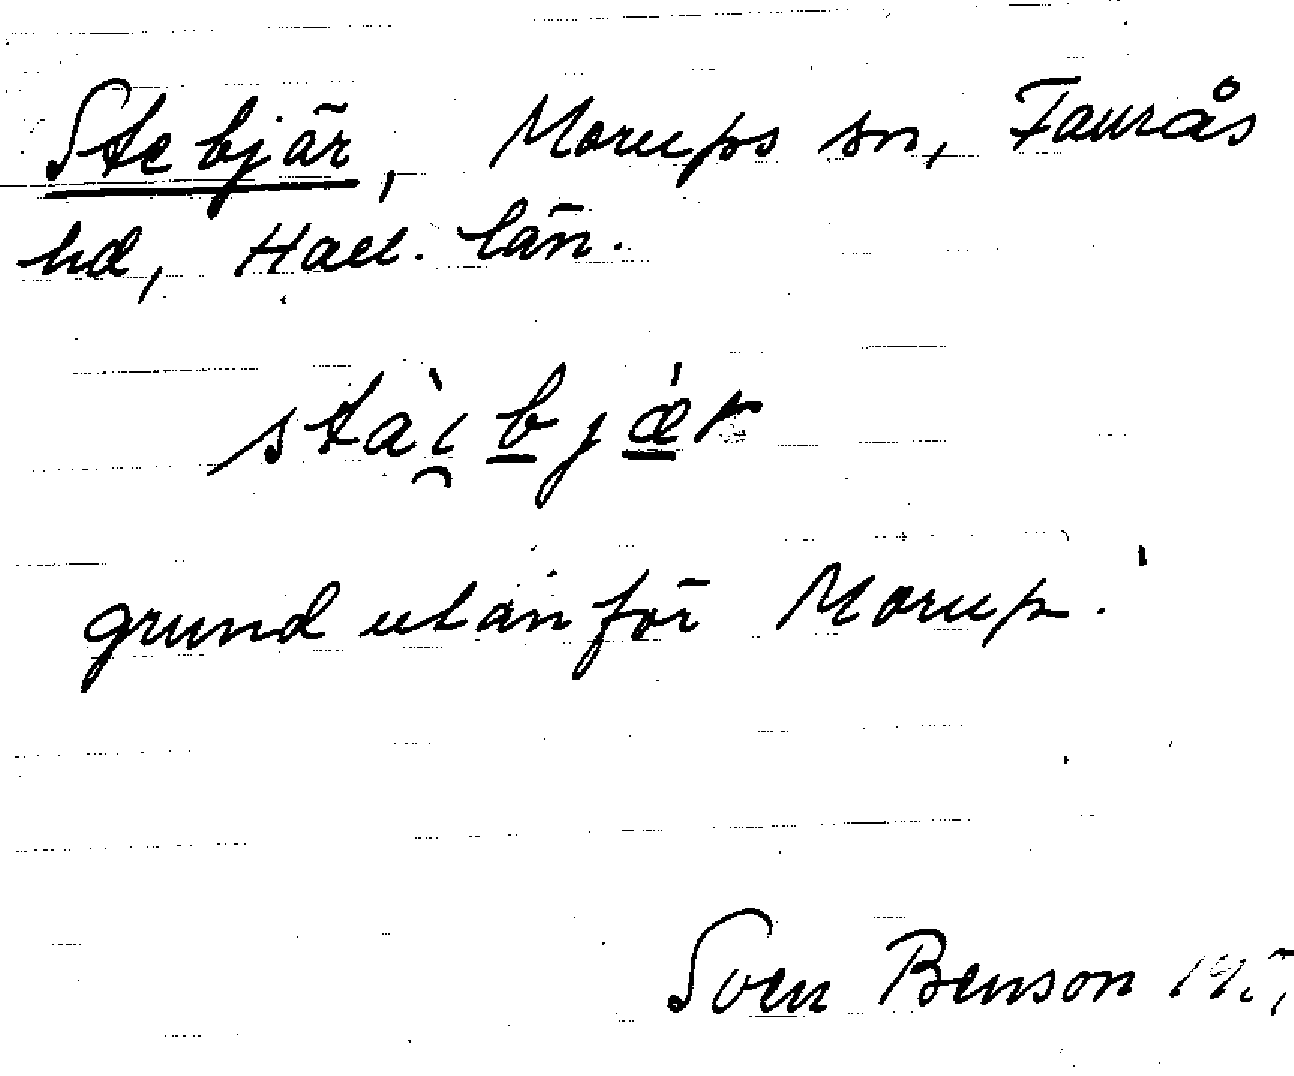 Stebjär, Morups sn, Faurås
hd, Hall. län.
stài̯bjǽr
grund utanför Morup.
Sven Benson